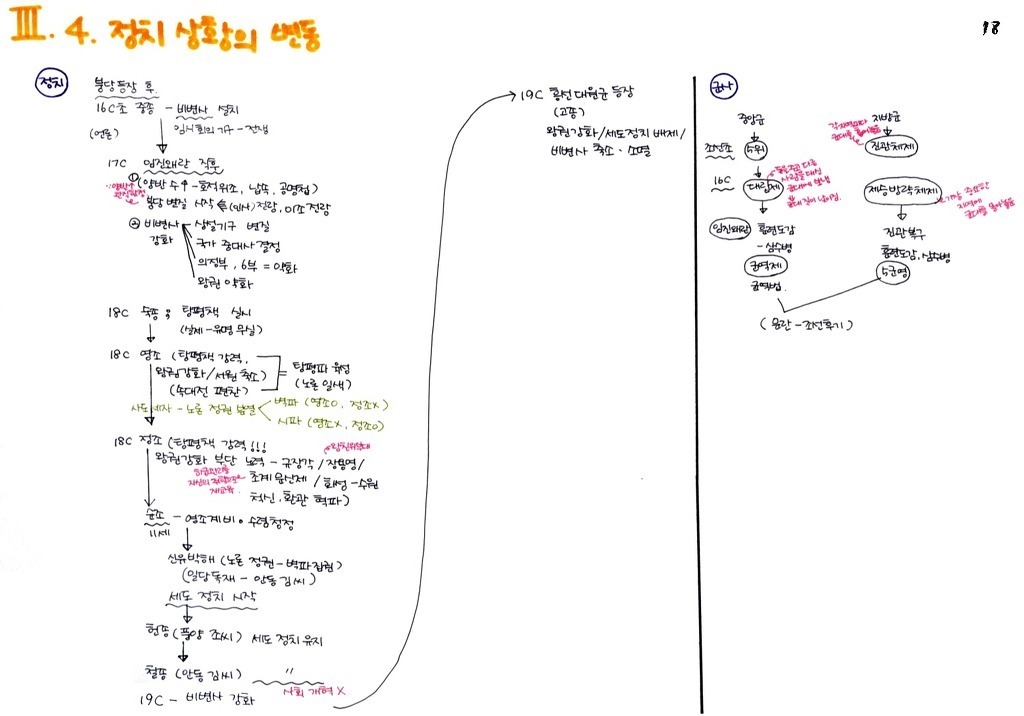 III. 4. 정치 상황의 변동
18
정치
붕당등장 후.
16C초 중종 - 비변사 설치
(언론) 임시회의기구 - 전쟁
17C 임진왜란 직후
① (양반 수↑ - 호적위조, 납속, 공명첩)
붕당 변질 시작 (인사) 전랑, 이조 전랑
② 비변사 - 상설기구 변질
강화
국가 중대사 결정
의정부, 6부 = 약화
왕권 약화
18C 숙종 ; 탕평책 실시
(실제 - 유명 무실)
18C 영조 (탕평책 강력,
왕권강화/서원 축소)
(속대전 편찬)
탕평파 육성
(노론 일색)
사도세자 - 노론 정권
벽파 (영조O, 정조X)
시파 (영조X, 정조O)
18C 정조 (탕평책 강력!!!
왕친위부대
왕권강화 부단 노력 - 규장각/장용영/
자신의
재교육
초계문신제 / 화성 - 수원
척신, 환관 혁파)
순조 - 영조계비 • 수렴청정
11세
신유박해 (노론 정권 - 벽파집권)
(일당독재 - 안동 김씨)
세도 정치 시작
헌종 (풍양 조씨) 세도 정치 유지
철종 (안동 김씨) 〃
사회 개혁 X
19C - 비변사 강화
19C 흥선 대원군 등장
(고종)
왕권강화/세도정치 배제/
비변사 축소 · 소멸
군사
중앙군 지방군
조선초 5위 진관체제
16C 대립제 제승방략체제
사람을 대신
군대에 보냄
가장 중요한
지역에
군대를
임진왜란 훈련도감
- 삼수병
균역제
균역법.
진관복구
훈련도감, 삼수병
5군영
(문란 - 조선후기)